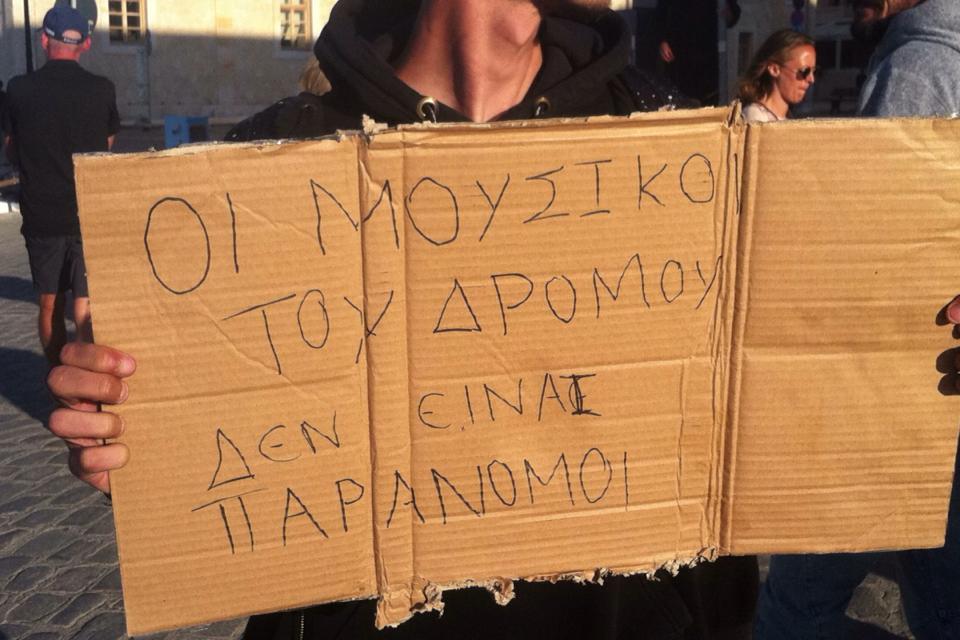 ΟΙ ΜΟΥΣΙΚΟΙ
ΤΟΥ ΔΡΟΜΟΥ
ΔΕΝ ΕΙΝΑΙ
ΠΑΡΑΝΟΜΟΙ